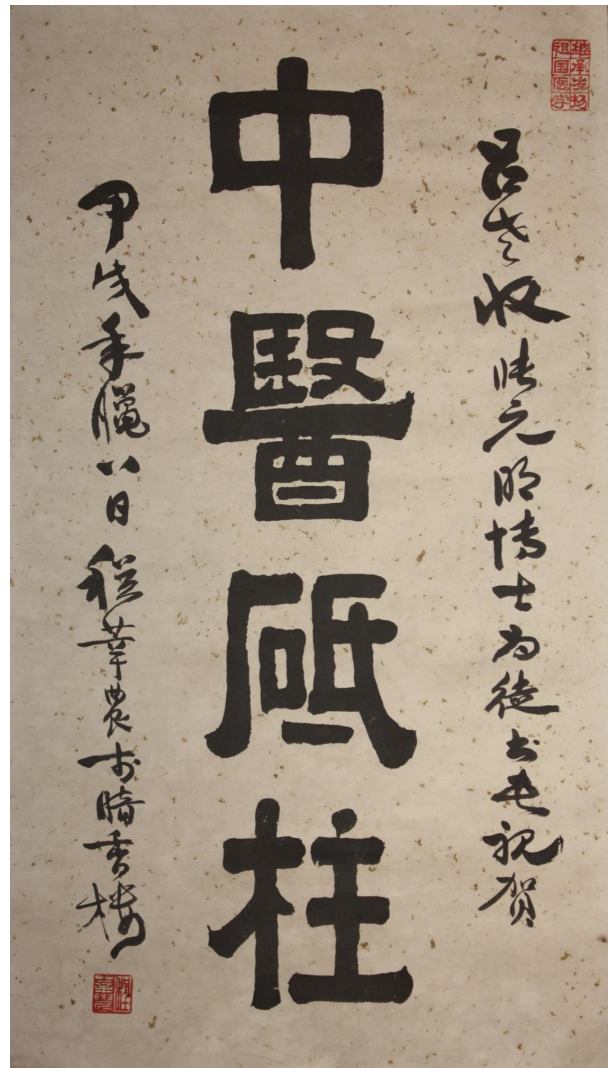 继承发扬
祖国医学
吕老收张元明博士为徒书此祝贺
中醫砥柱
甲戌年腊八日程莘农书暗香楼